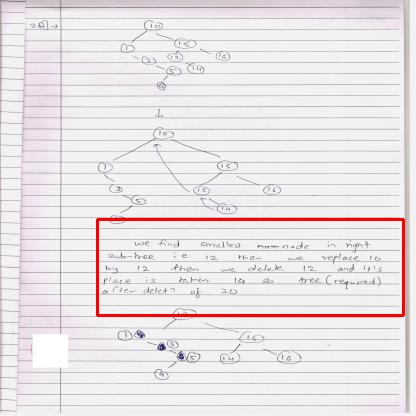 10
1 15
3 12 16
5 14
4
↓
10
1 15
3 12 16
5 14
we find smallest node in right
sub-tree i.e 12 then we replace 10
by 12 then we delete 12 and it's
place is taken 14 so tree (required)
after delet? of 20
1 3 15
5 14 16
4